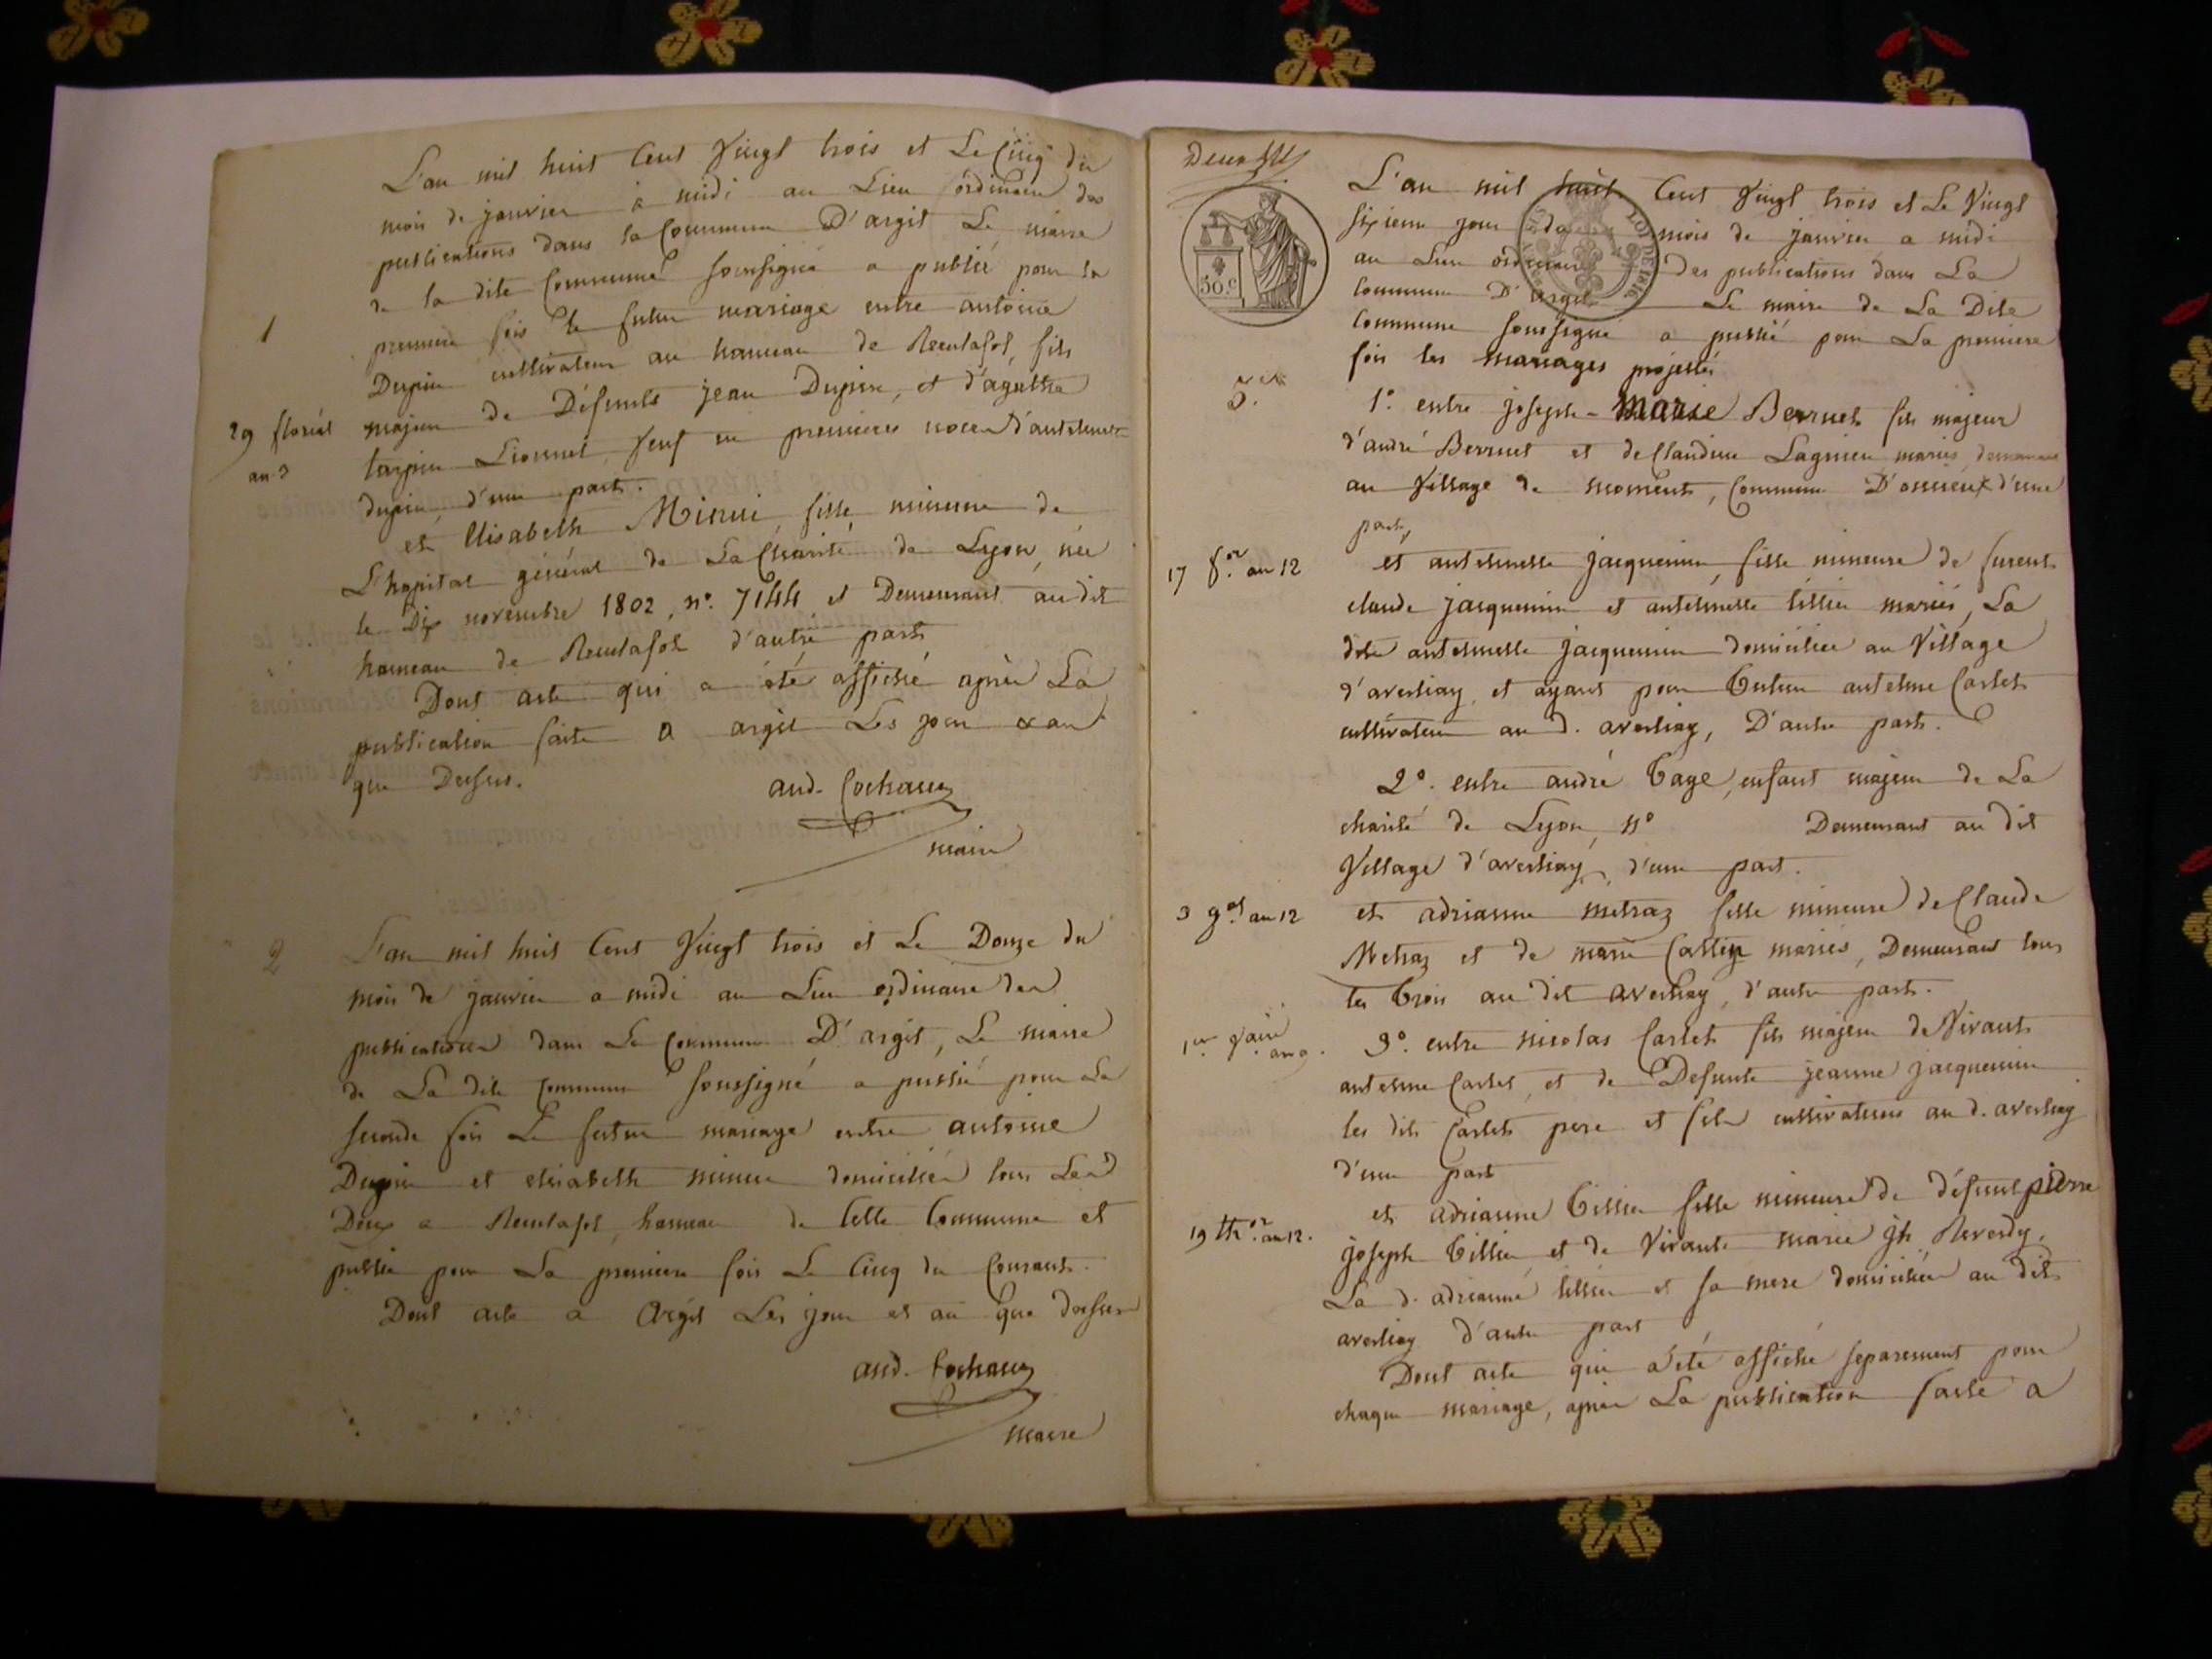 L'an mil huit Cent Vingt trois et Le Cinq du
mois de janvier à midi au Lieu ordinaire des
publications dans la Commune D'argit Le maire
de la dite Commune soussigné a publié pour la
1
premiere fois le futur mariage entre antoine
Dupin cultivateur au hameau de Reculafol, fils
29 floréal
an 3
majeur de Défunts jean Dupin, et d'agathe
tarpin Lionnet, Veuf en premieres noces d'anthelmette
dupin, d'une part.
et Elisabeth Minui, fille mineure de
L'hopital général de La Charité de Lyon, née
le Dix novembre 1802, n°. 7144 et Demeurant au dit
hameau de Reculafol d'autre part
Dont acte qui a été affiché après La
publication faite a argit Les jour & an
que Dessus.
and. Cochaux
maire
2
L'an mil huit Cent Vingt trois et Le Douze du
mois de janvier a midi au Lieu ordinaire des
publications dans La Commune D'argit, Le maire
de La dite Commune soussigné a publié pour La
seconde fois Le futur mariage entre antoine
Dupin et elisabeth minui domiciliés tous Les
Deux a Reculafol, hameau de Cette Commune et
publié pour La premiere fois Le Cinq du Courant.
Dont acte a Argit Les jour et an que dessus
and. Cochaux
maire
30.C
LOI DE 1816
L'an mil huit Cent Vingt trois et Le Vingt
sixieme jour du mois de janvier a midi
au Lieu ordinaire Des publications dans La
Commune D'argit Le maire de La Dite
Commune soussigné a publié pour La premiere
fois les mariages projettés
3.
1°. entre joseph-Marie Berruet fils majeur
d'andré Berruet et de Claudine Lagnieu mariés, demeurans
au Village de moment, Commune D'oncieux d'une
part,
17 f.or an 12
et anthelmette jacquemin, fille mineure de furent
claude jacquemin et anthelmette tillier mariés, La
dite anthelmette jacquemin domiciliée au Village
d'averliaz, et ayant pour tuteur anthelme Carlet
cultivateur au d. averliaz, D'autre part.
2°. entre andré taye, enfant majeur de La
charité de Lyon, n° Demeurant au dit
Village d'averliaz, d'une part.
3 g.al an 12
et adrianne metraz fille mineure de Claude
Metraz et de marie mariés, Demeurant tous
les trois au dit averliaz, d'autre part.
1er
an 9.
3°. entre nicolas Carlet fils majeur de Vivant
anthelme Carlet, et de Defunte jeanne jacquemin
les dits Carlet pere et fils cultivateurs au d. averliaz
d'une part
19 th.or an 12.
et adrianne tillier fille mineure de défunt pierre
joseph tillier et de Vivante marie jh Reverdy.
La d. adrianne tillier et sa mere domiciliées au dit
averliaz d'autre part
Dont acte qui a été affiché separement pour
chaque mariage, après La publication faite a